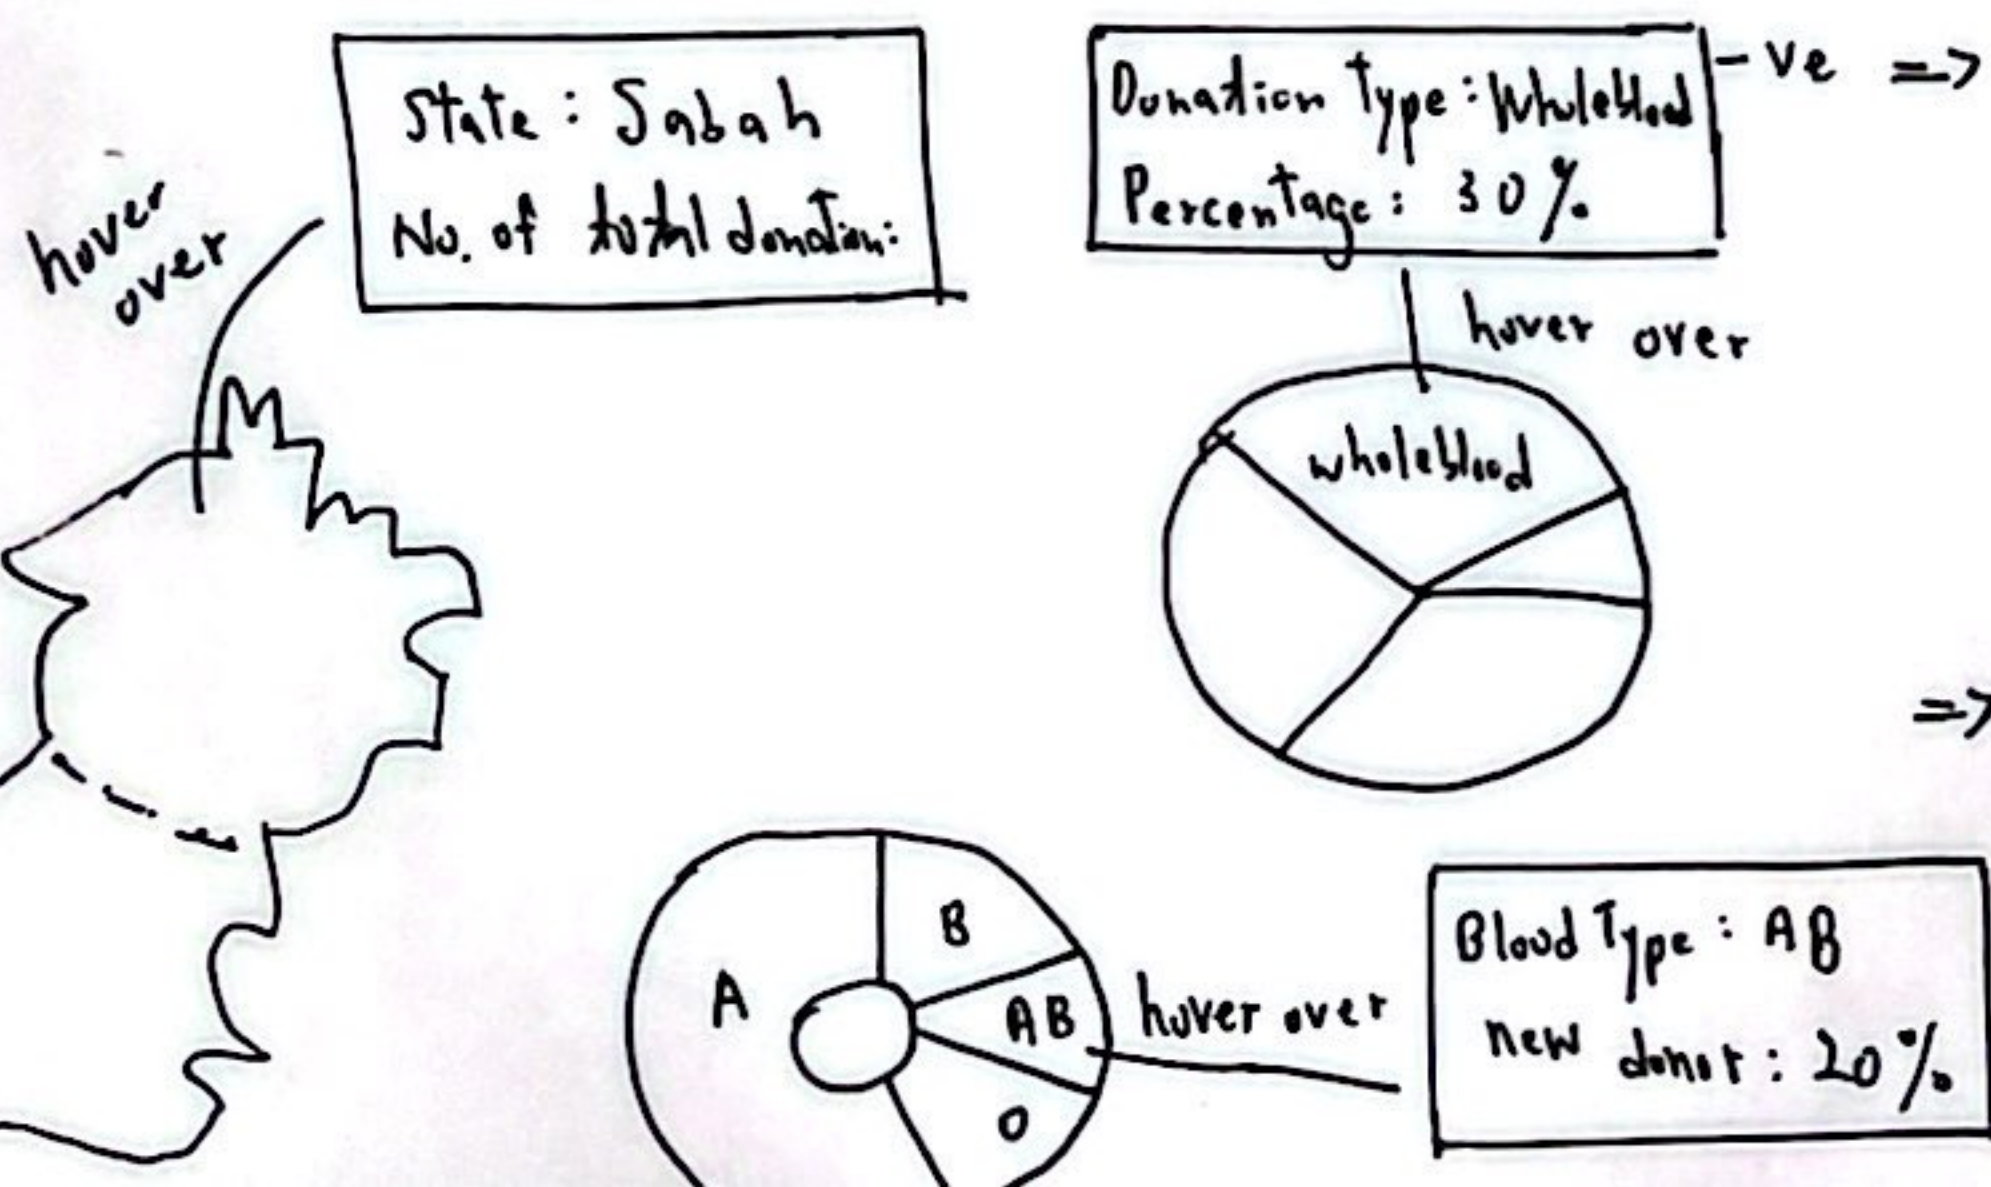 State : Sabah
No. of total donation:
hover
over
Donation Type : Wholeblood
Percentage : 30%
-ve =>
hover over
wholeblood
=>
A
B
AB
O
hover over
Blood Type : AB
new donor : 20%